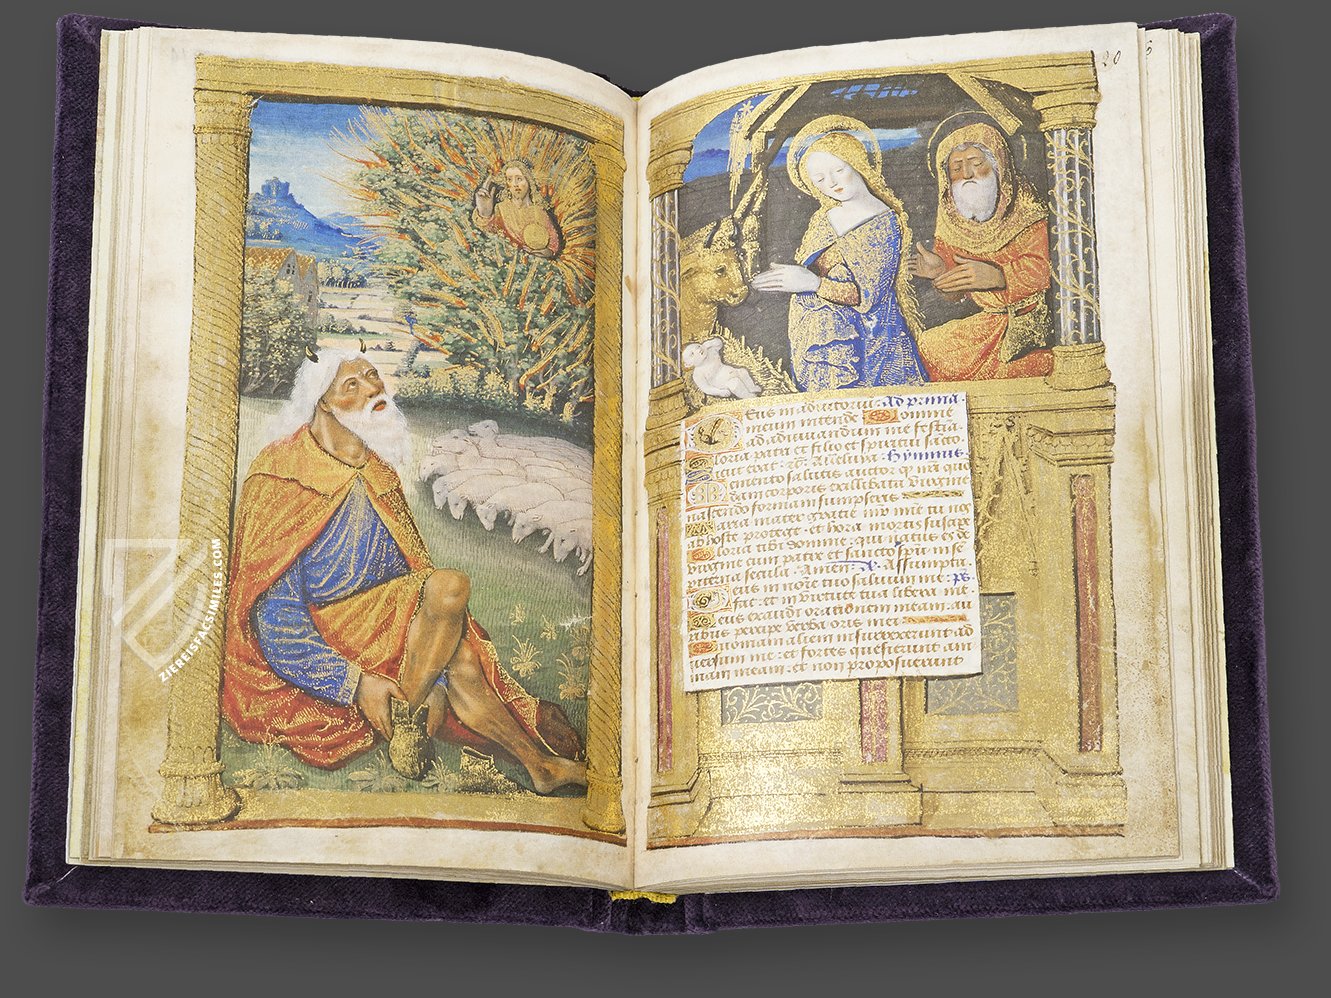 20 6
Deus in adiutoriũ Ad prima.
meum intende Domine
ad adiuuandum me festiã.
Gloria patri et filio et spiritui sãcto
Sicut erat Alleluya hymnus
Memento salutis auctor q nr̃i quõ
dam corporis ex illibata virgine
nascendo formam sumpseris
Maria mater gratie
ab hoste protege et hora mortis suscipe
Gloria tibi domine qui natus es de
virgine cum patre et sancto spũ in sẽ
piterna secula. Amen. Assumpta.
Deus in noĩe tuo saluum me ps.
fac: et in virtute tua libera me
Deus exaudi orationem meam: au
ribus percipe verba oris mei
Quoniam alieni insurrexerunt ad
uersum me: et fortes quesierunt ani
mam meam: et non proposuerunt
ZIEREISFACSIMILES.COM